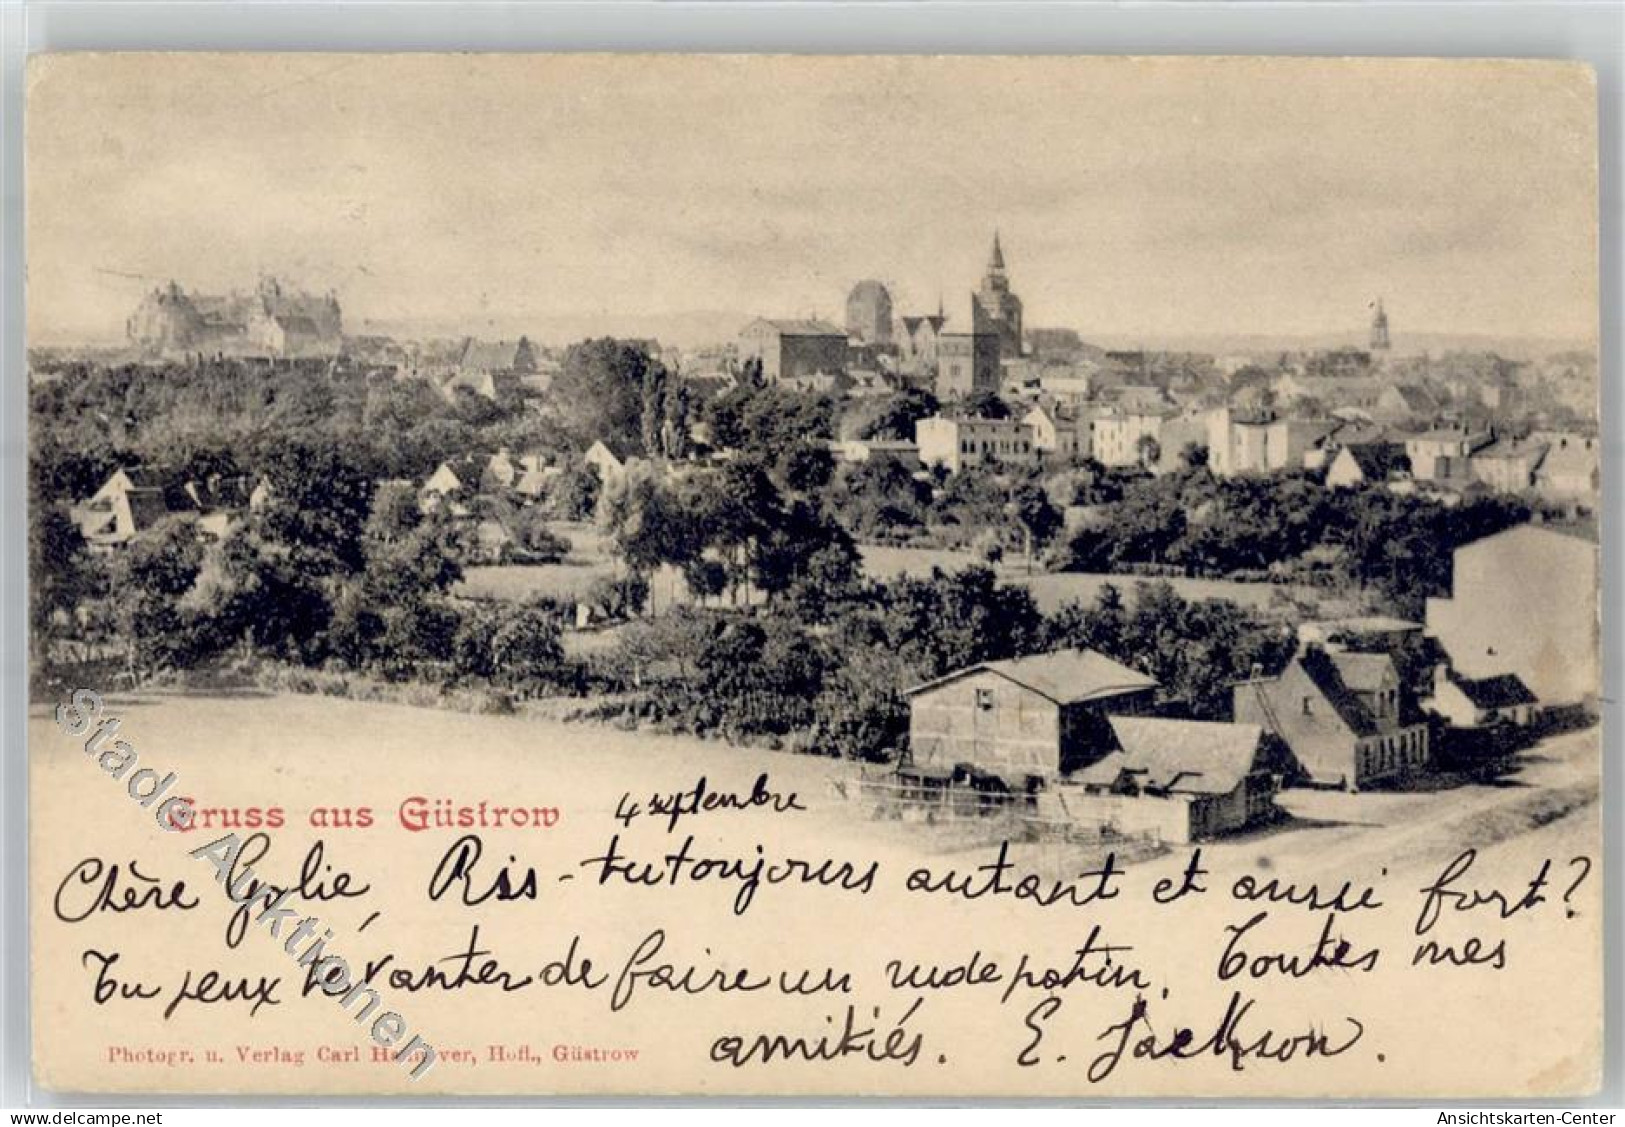 Gruss aus Güstrow
4 septembre
Chère Yolie, Ris-tu toujours autant et aussi fort?
Tu peux te vanter de faire un rude patin. Toutes mes
amitiés. E. Jackson.
Photogr. u. Verlag Carl Hannover, Hofl., Güstrow
Stade Auktionen
© oldthing.com
Ansichtskarten-Center